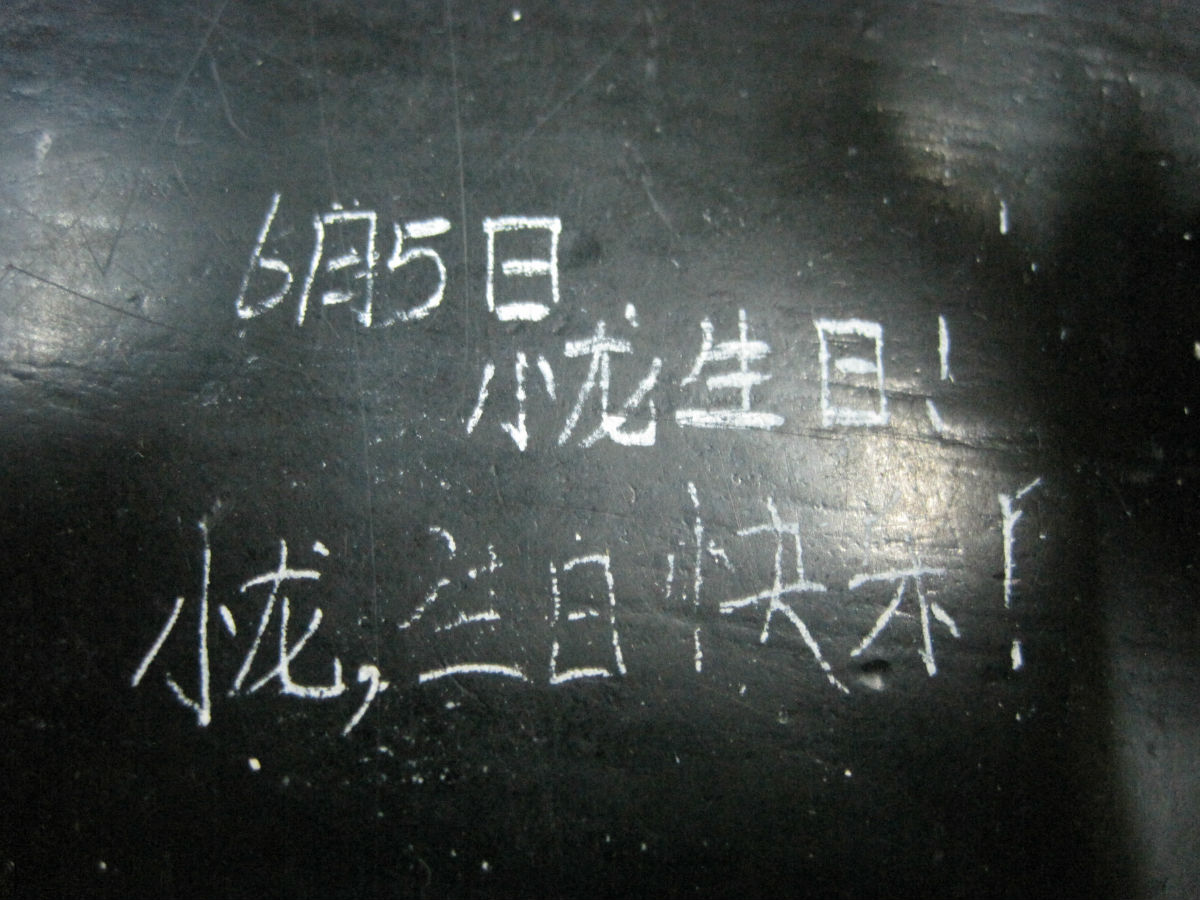 6月5日
小龙生日!
小龙,生日快乐!